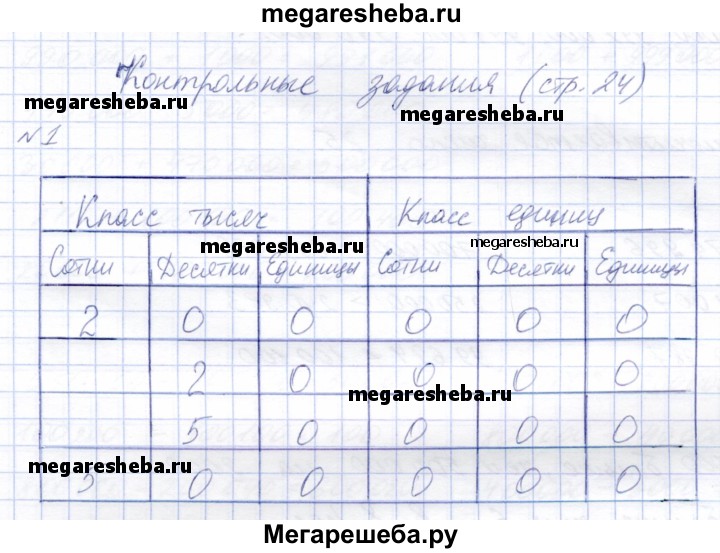 megaresheba.ru
Контрольные задания (стр. 24)
megaresheba.ru megaresheba.ru
№1
Класс тысяч Класс единиц
megaresheba.ru megaresheba.ru
Сотни Десятки Единицы Сотни Десятки Единицы
2 0 0 0 0 0
2 0 0 0 0
megaresheba.ru
5 0 0 0 0
megaresheba.ru megaresheba.ru
0 0 0 0 0
Мегарешеба.ру